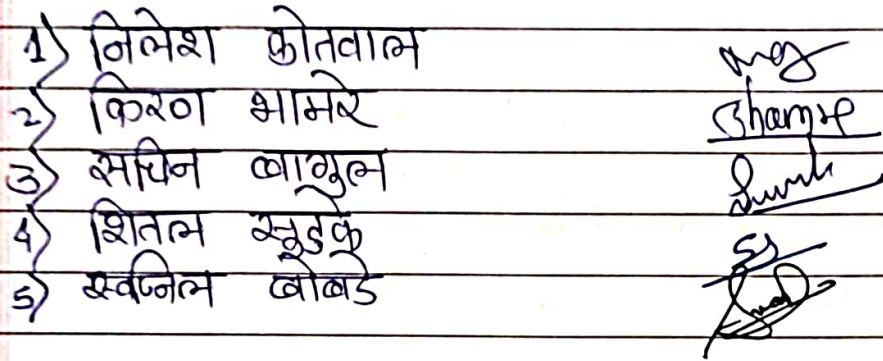 1) निलेश कोतवाल
2) किरण भामरे Bhamre
3) सचिन बागुल
4) शितल सुडके
5) स्वप्निल बोबडे